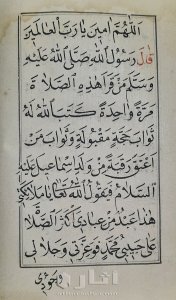 اَللّٰهُمَّ اٰمِينَ يَا رَبَّ الْعَالَمِينَ
قَالَ رَسُولُ اللّٰهِ صَلَّى اللّٰهُ عَلَيْهِ
وَسَلَّمَ مَنْ قَرَاَ هٰذِهِ الصَّلَاةَ
مَرَّةً وَاحِدَةً كَتَبَ اللّٰهُ لَهُ
ثَوَابَ حَجَّةٍ مَقْبُولَةٍ وَثَوَابَ مَنْ
اَعْتَقَ رَقَبَةً مِنْ وُلْدِ اِسْمَاعِيلَ عَلَيْهِ
السَّلَامُ فَيَقُولُ اللّٰهُ تَعَالٰى يَا مَلَائِكَتِي
هٰذَا عَبْدٌ مِنْ عِبَادِي اَكْثَرَ الصَّلَاةَ
عَلَى حَبِيبِي مُحَمَّدٍ فَوَعِزَّتِي وَجَلَالِي
وَجُودِي